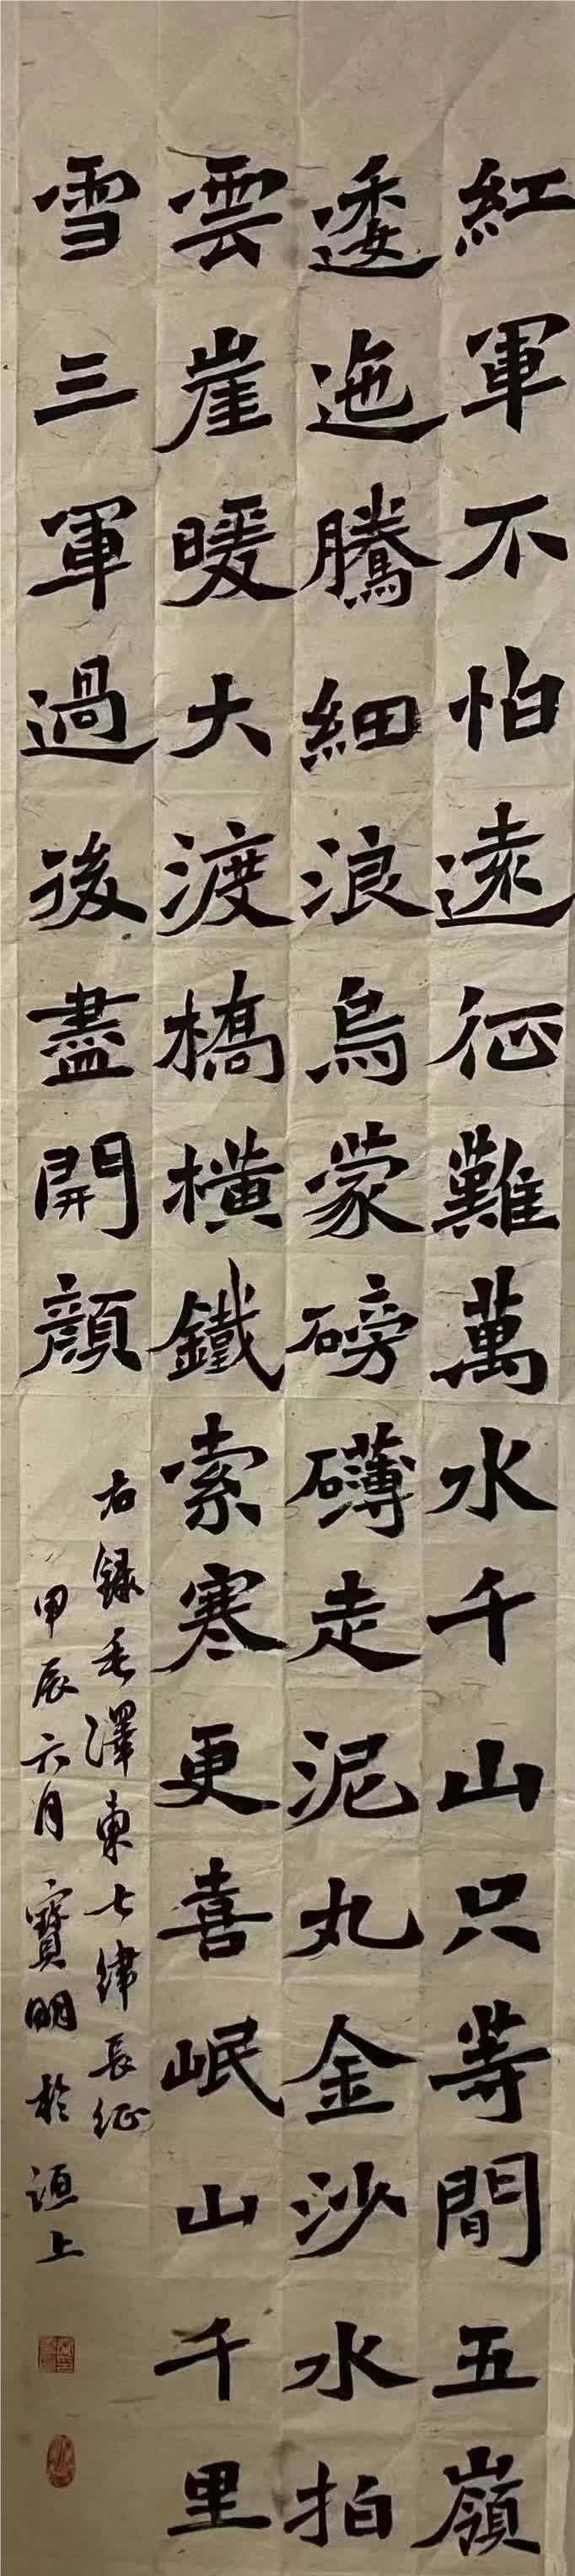 紅軍不怕遠征難萬水千山只等間五嶺
逶迤騰細浪烏蒙磅礴走泥丸金沙水拍
雲崖暖大渡橋橫鐵索寒更喜岷山千里
雪三軍過後盡開顏
右錄毛澤東七律長征
甲辰六月寶明於洹上